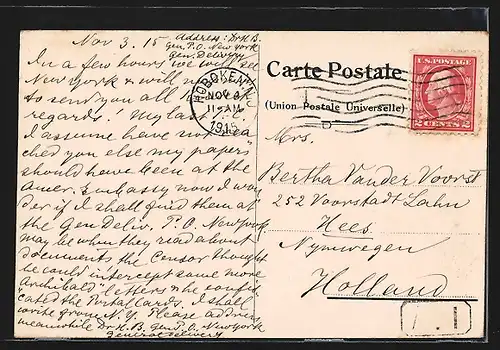 Nov 3. 15
Address: Dr H.B.
Gen. P.O. New York
Gen. Delivery
In a few hours we will see
New York & will not fail
to send you all kind
regards! My last
I assume have not rea-
ched you else my papers
should have been at the
Amer. Embassy now I won-
der if I shall find them at
the Gen Deliv. P.O. New York
may be when they read about
documents the Censor thought
he could intercept some more
"Archibald" letters & he confis-
cated the Postal Cards. I shall
write from N.Y. Please address
meanwhile Dr H.B. Gen. P.O. New York
General delivery
HOBOKEN, N.J.
NOV 4
11-AM
1915
Carte Postale
(Union Postale Universelle)
U.S. POSTAGE
2 CENTS 2
Mrs.
Bertha Van der Voorst
252 Voorstadt Lahn
Hees
Nymwegen
Holland